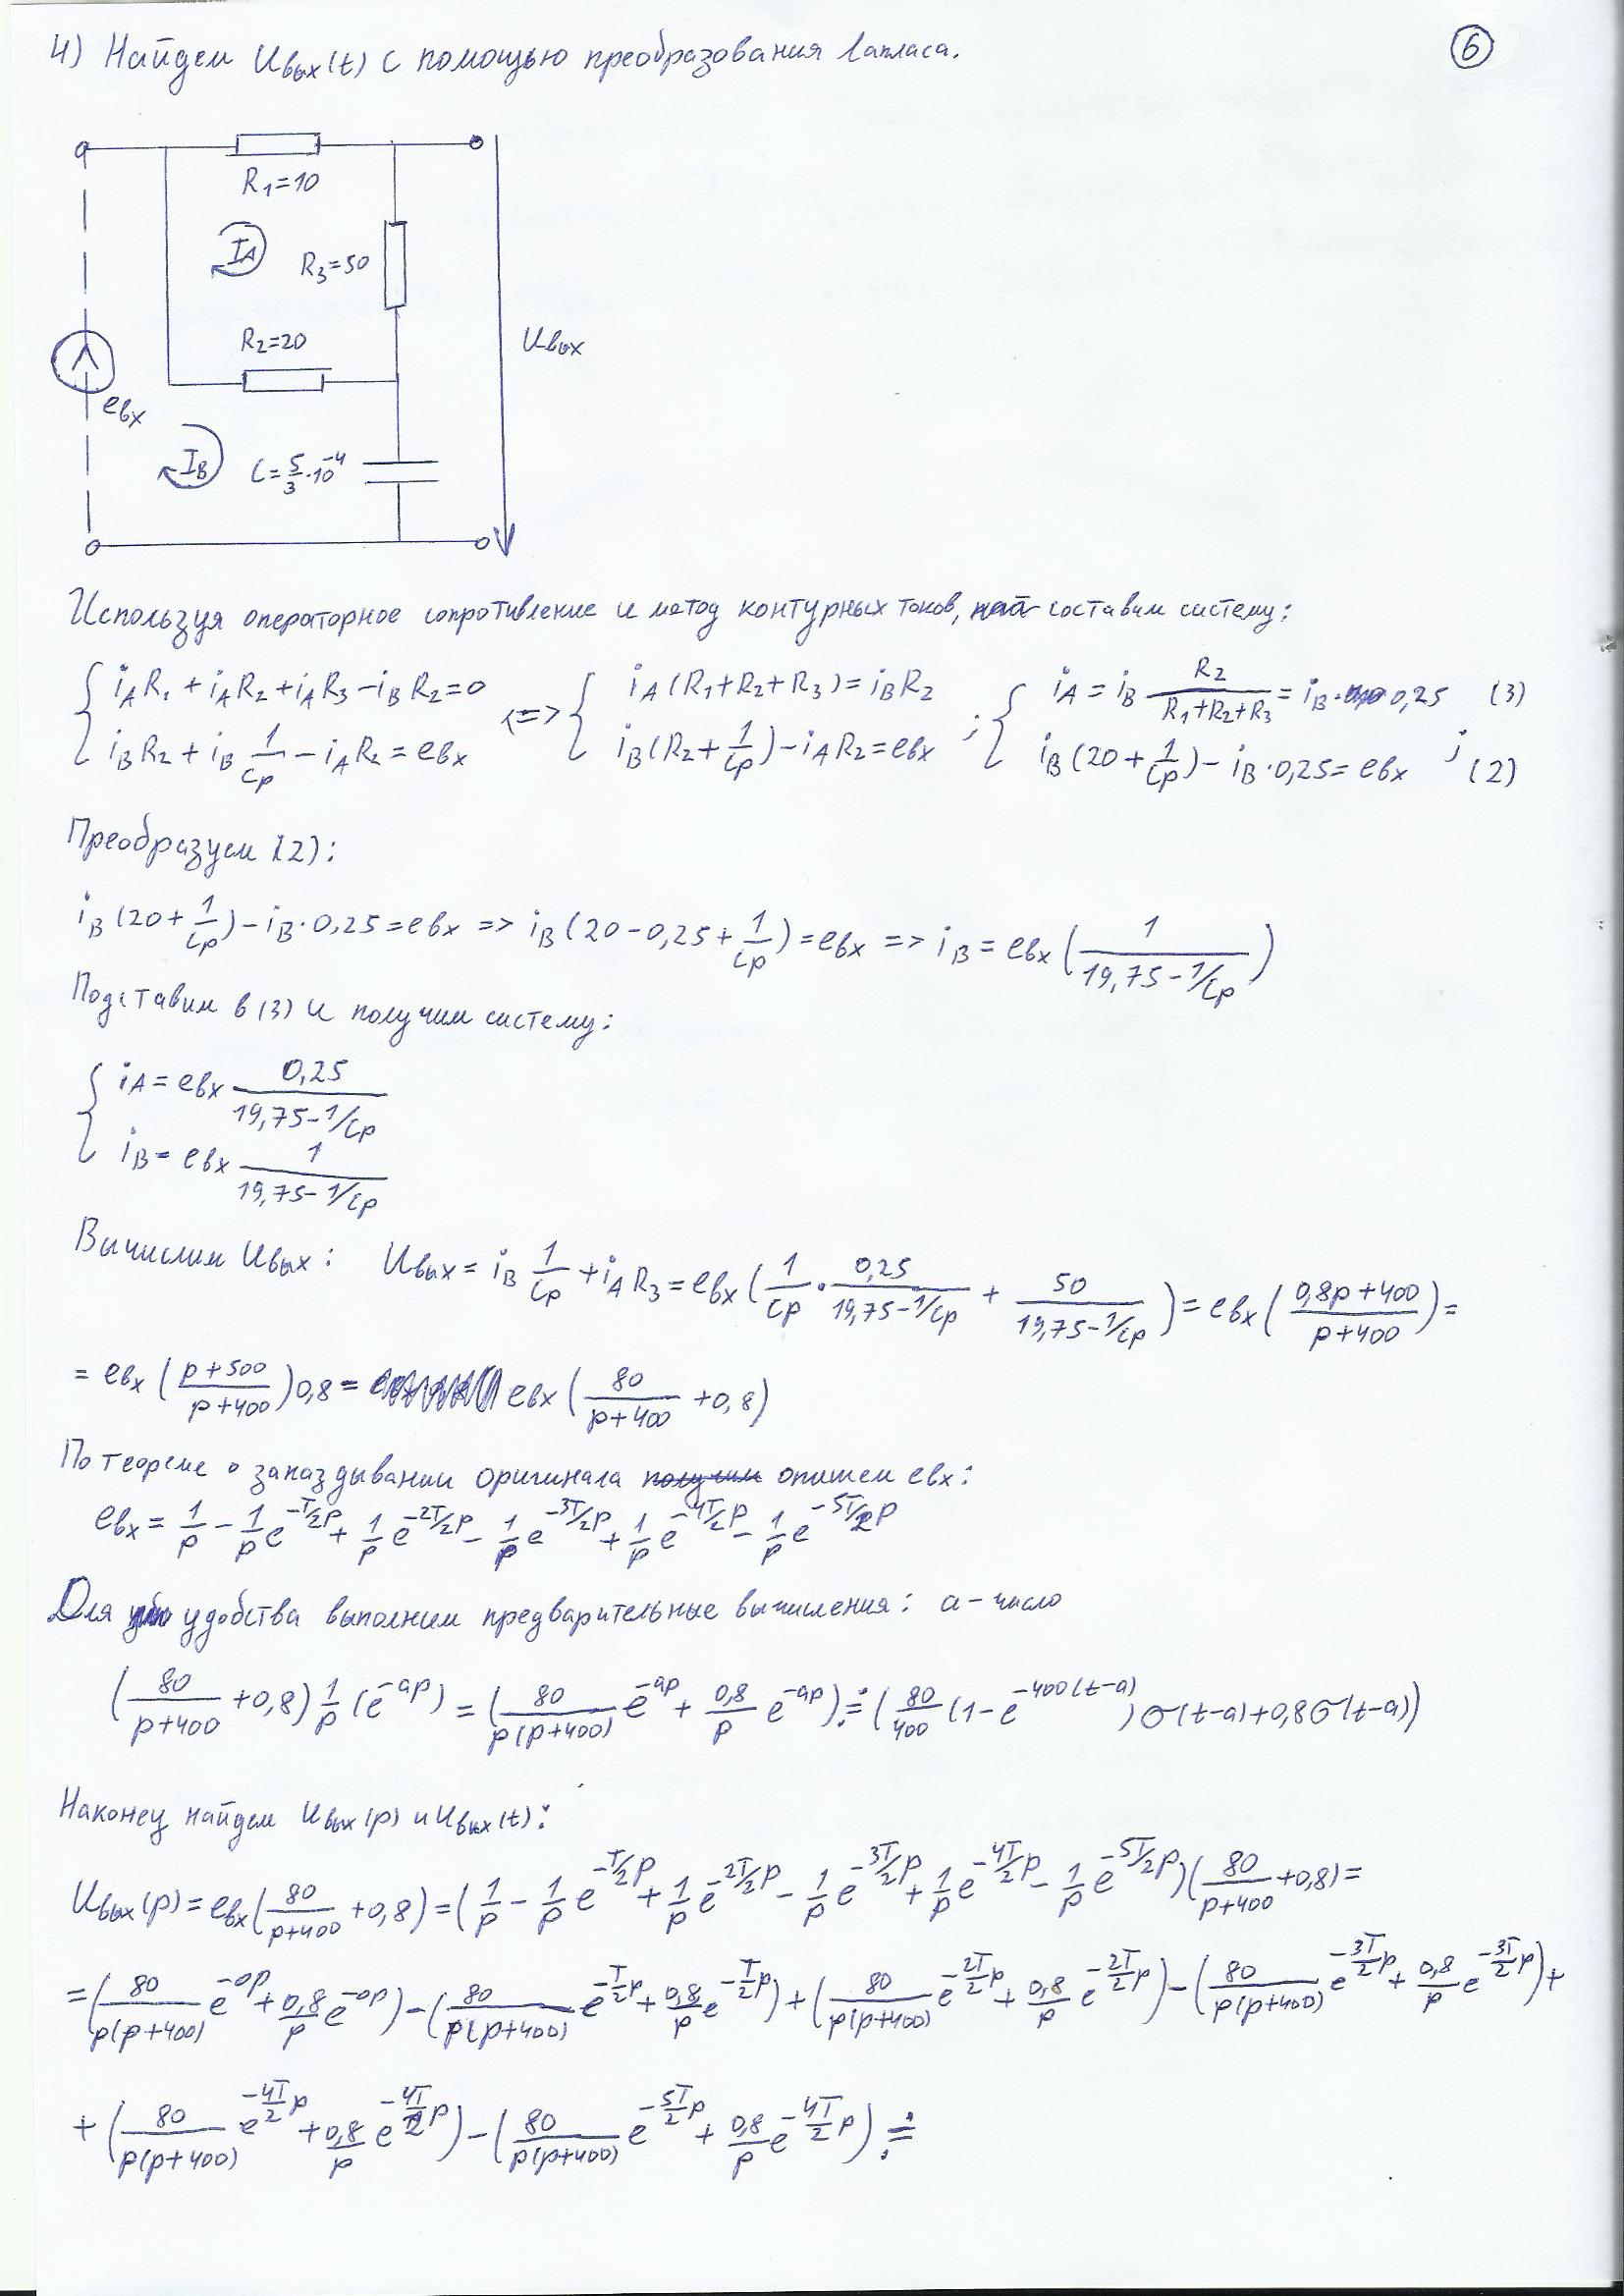 4) Найдем Uвых(t) с помощью преобразования Лапласа.
6
R1=10
IA
R3=50
R2=20
Uвых
eвх
IB
C=5/3·10^-4
Используя операторное сопротивление и метод контурных токов, составим систему:
{ iAR1+iAR2+iAR3-iBR2=0 <=> { iA(R1+R2+R3)=iBR2 ; { iA=iB R2/(R1+R2+R3)=iB·0,25 (3)
{ iBR2+iB 1/Cp-iAR2=eвх { iB(R2+1/Cp)-iAR2=eвх { iB(20+1/Cp)-iB·0,25=eвх ; (2)
Преобразуем (2):
iB(20+1/Cp)-iB·0,25=eвх => iB(20-0,25+1/Cp)=eвх => iB=eвх(1/(19,75-1/Cp))
Подставим в (3) и получим систему:
{ iA=eвх 0,25/(19,75-1/Cp)
{ iB=eвх 1/(19,75-1/Cp)
Вычислим Uвых: Uвых=iB 1/Cp+iAR3=eвх(1/Cp·0,25/(19,75-1/Cp)+50/(19,75-1/Cp))=eвх((0,8p+400)/(p+400))=
=eвх((p+500)/(p+400))0,8= eвх(80/(p+400)+0,8)
По теореме о запаздывании оригинала получим опишем eвх:
eвх=1/p-1/p e^(-T/2p)+1/p e^(-2T/2p)-1/p e^(-3T/2p)+1/p e^(-4T/2p)-1/p e^(-5T/2p)
Для удобства выполним предварительные вычисления: a-число
(80/(p+400)+0,8)1/p(e^(-ap))=(80/(p(p+400)) e^(-ap)+0,8/p e^(-ap))≓(80/400(1-e^(-400(t-a)))σ(t-a)+0,8σ(t-a))
Наконец найдем Uвых(p) и Uвых(t):
Uвых(p)=eвх(80/(p+400)+0,8)=(1/p-1/p e^(-T/2p)+1/p e^(-2T/2p)-1/p e^(-3T/2p)+1/p e^(-4T/2p)-1/p e^(-5T/2p))(80/(p+400)+0,8)=
=(80/(p(p+400)) e^(-0p)+0,8/p e^(-0p))-(80/(p(p+400)) e^(-T/2p)+0,8/p e^(-T/2p))+(80/(p(p+400)) e^(-2T/2p)+0,8/p e^(-2T/2p))-(80/(p(p+400)) e^(-3T/2p)+0,8/p e^(-3T/2p))+
+(80/(p(p+400)) e^(-4T/2p)+0,8/p e^(-4T/2p))-(80/(p(p+400)) e^(-5T/2p)+0,8/p e^(-4T/2p))≓